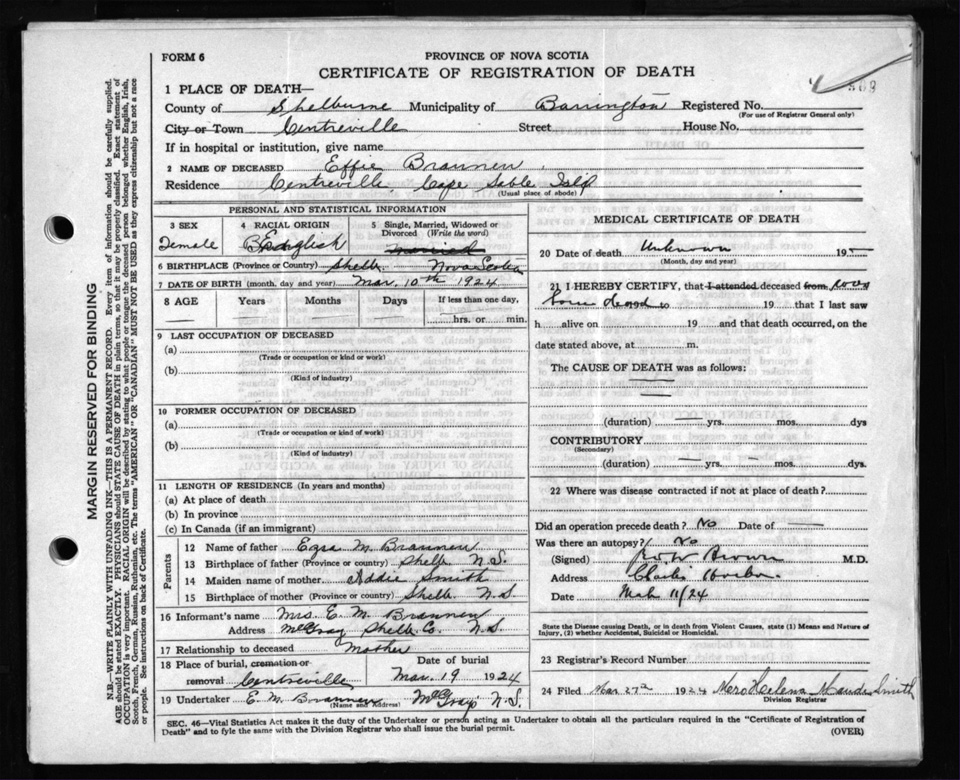 FORM 6
PROVINCE OF NOVA SCOTIA
CERTIFICATE OF REGISTRATION OF DEATH
1 PLACE OF DEATH—
County of Shelburne Municipality of Barrington Registered No.
(For use of Registrar General only)
City or Town Centreville Street House No.
If in hospital or institution, give name
2 NAME OF DECEASED Effie Brannen
Residence Centreville, Cape Sable Isld
(Usual place of abode)
PERSONAL AND STATISTICAL INFORMATION
3 SEX 4 RACIAL ORIGIN 5 Single, Married, Widowed or Divorced (Write the word)
Female English married
6 BIRTHPLACE (Province or Country) Shelb. Nova Scotia
7 DATE OF BIRTH (month, day and year) Mar. 10th 1924
8 AGE Years Months Days If less than one day,
hrs. or min.
9 LAST OCCUPATION OF DECEASED
(a)
(Trade or occupation or kind or work)
(b)
(Kind of industry)
10 FORMER OCCUPATION OF DECEASED
(a)
(Trade or occupation or kind of work)
(b)
(Kind of industry)
11 LENGTH OF RESIDENCE (In years and months)
(a) At place of death
(b) In province
(c) In Canada (if an immigrant)
Parents
12 Name of father Ezra M. Brannen
13 Birthplace of father (Province or country) Shelb. N.S.
14 Maiden name of mother Addie Smith
15 Birthplace of mother (Province or country) Shelb. N.S
16 Informant's name Mrs. E. M. Brannen
Address McGray Shelb Co. N.S
17 Relationship to deceased Mother
18 Place of burial, cremation or removal Centreville Date of burial Mar. 19 1924
19 Undertaker E. M. Brannen McGray N.S.
(Name and Address)
MEDICAL CERTIFICATE OF DEATH
20 Date of death Unknown 19
(Month, day and year)
21 I HEREBY CERTIFY, that I attended deceased from, was
born dead to 19 that I last saw
h alive on 19 and that death occurred, on
date stated above, at m.
The CAUSE OF DEATH was as follows:
(duration) yrs. mos. dys
CONTRIBUTORY
(Secondary)
(duration) yrs. mos. dys.
22 Where was disease contracted if not at place of death?
Did an operation precede death? No Date of
Was there an autopsy? No
(Signed) Brown M.D.
Address
Date Mch 11/24
State the Disease causing Death, or in death from Violent Causes, state (1) Means and Nature of Injury, (2) whether Accidental, Suicidal or Homicidal.
23 Registrar's Record Number
24 Filed Mar 27th 1924 Mrs Helena Maude Smith
Division Registrar
SEC. 46—Vital Statistics Act makes it the duty of the Undertaker or person acting as Undertaker to obtain all the particulars required in the "Certificate of Registration of
Death" and to fyle the same with the Division Registrar who shall issue the burial permit.
(OVER)
MARGIN RESERVED FOR BINDING
N.B.—WRITE PLAINLY WITH UNFADING INK—THIS IS A PERMANENT RECORD. Every item of information should be carefully supplied.
AGE should be stated EXACTLY. PHYSICIANS should STATE CAUSE OF DEATH in plain terms, so that it may be properly classified. Exact statement of
OCCUPATION is very important. RACIAL ORIGIN will be described by stating to what people or tongue the deceased person belonged whether English, Irish,
Scotch, French, German, Russian, Ruthenian, etc. The terms "AMERICAN" OR "CANADIAN" MUST NOT BE USED as they express citizenship but not a race
or people. See instructions on back of Certificate.